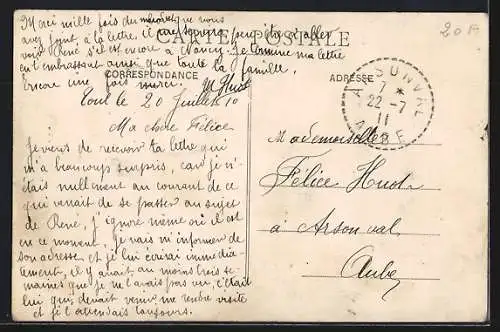 Merci mille fois du
vous
avez joint à la lettre, il me
voir René s'il est encore à Nancy. Je termine ma lettre
en t'embrassant ainsi que toute la famille.
Encore une fois merci.
CARTE POSTALE
CORRESPONDANCE
ADRESSE
20F
ARSONVAL
7 *
22 -7
11
AUBE
Toul le 20 Juillet 10
Ma chère Félice
Je viens de recevoir ta lettre qui
m'a beaucoup surpris, car je n'é-
tais nullement au courant de ce
qui venait de se passer au sujet
de René, j'ignore même où il est
en ce moment, je vais m'informer de
son adresse et je lui écrirai immédia-
tement, il y avait au moins trois se-
maines que je ne l'avais pas vu, c'était
lui qui devait venir me rendre visite
et je l'attendais toujours.
Mademoiselle
Félice Huot
à Arsonval
Aube